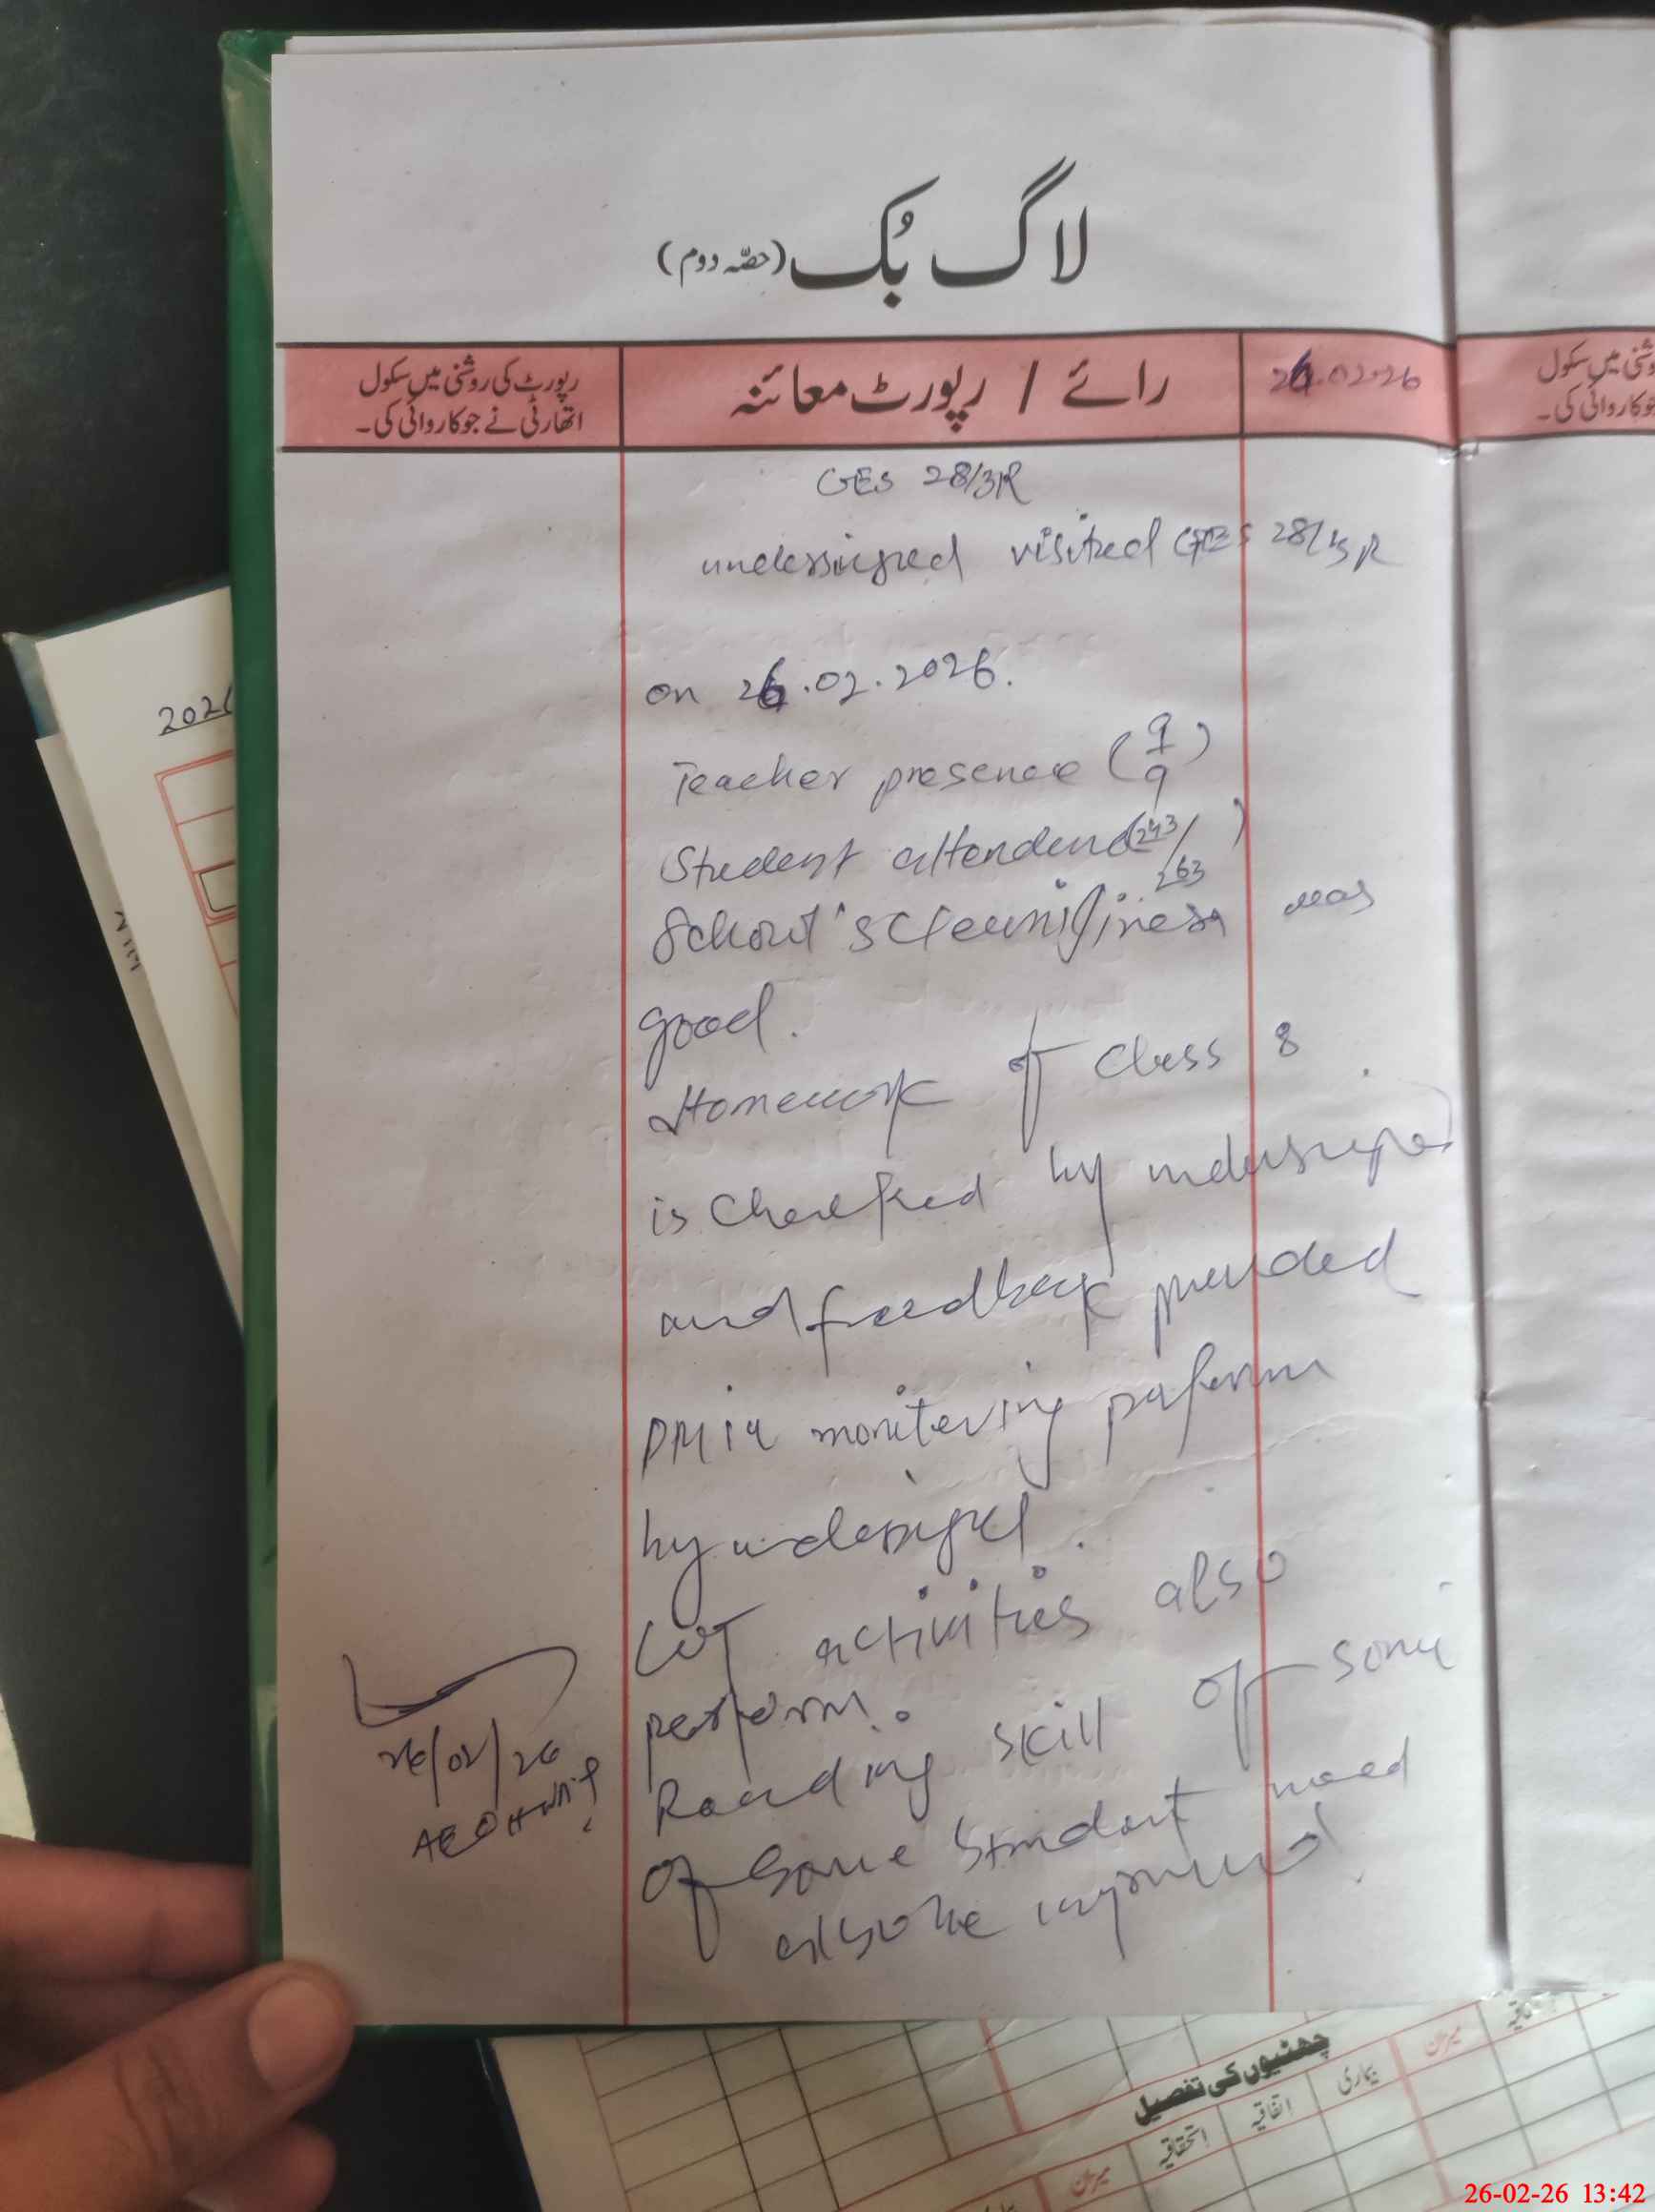 لاگ بُک (حصّہ دوم)
رپورٹ کی روشنی میں سکول
اتھارٹی نے جو کارروائی کی۔
رائے / رپورٹ معائنہ
26.02.26
GES 28/3R
undersigned visited GES 28/3R
on 26.02.2026.
Teacher presence (9/9)
Student attendend (243/263)
School's cleanliness was
good.
Homework of Class 8
is Checked by undersigned
and feedback provided
PMIU monitering
by undersigned.
activities also
perform.
Reading skill of some
of Some Student need
also be improved.
26/02/26
AEO
2026
شنی میں سکول
جو کارروائی کی۔
چھٹیوں کی تفصیل
میزان
استحقاقیہ
اتفاقیہ
بیماری
میزان
26-02-26 13:42